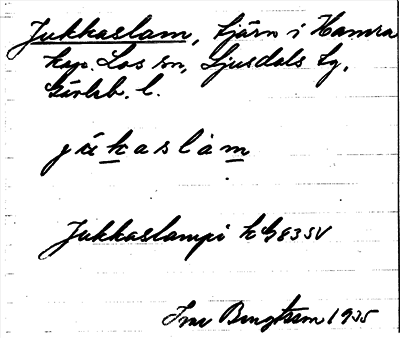 Jukkaslam, tjärn i Hamra
kap. Los sn, Ljusdals tg,
Gävleb. l.
jukaslam
Jukkaslampi k G83SV
Bengtsson 1935